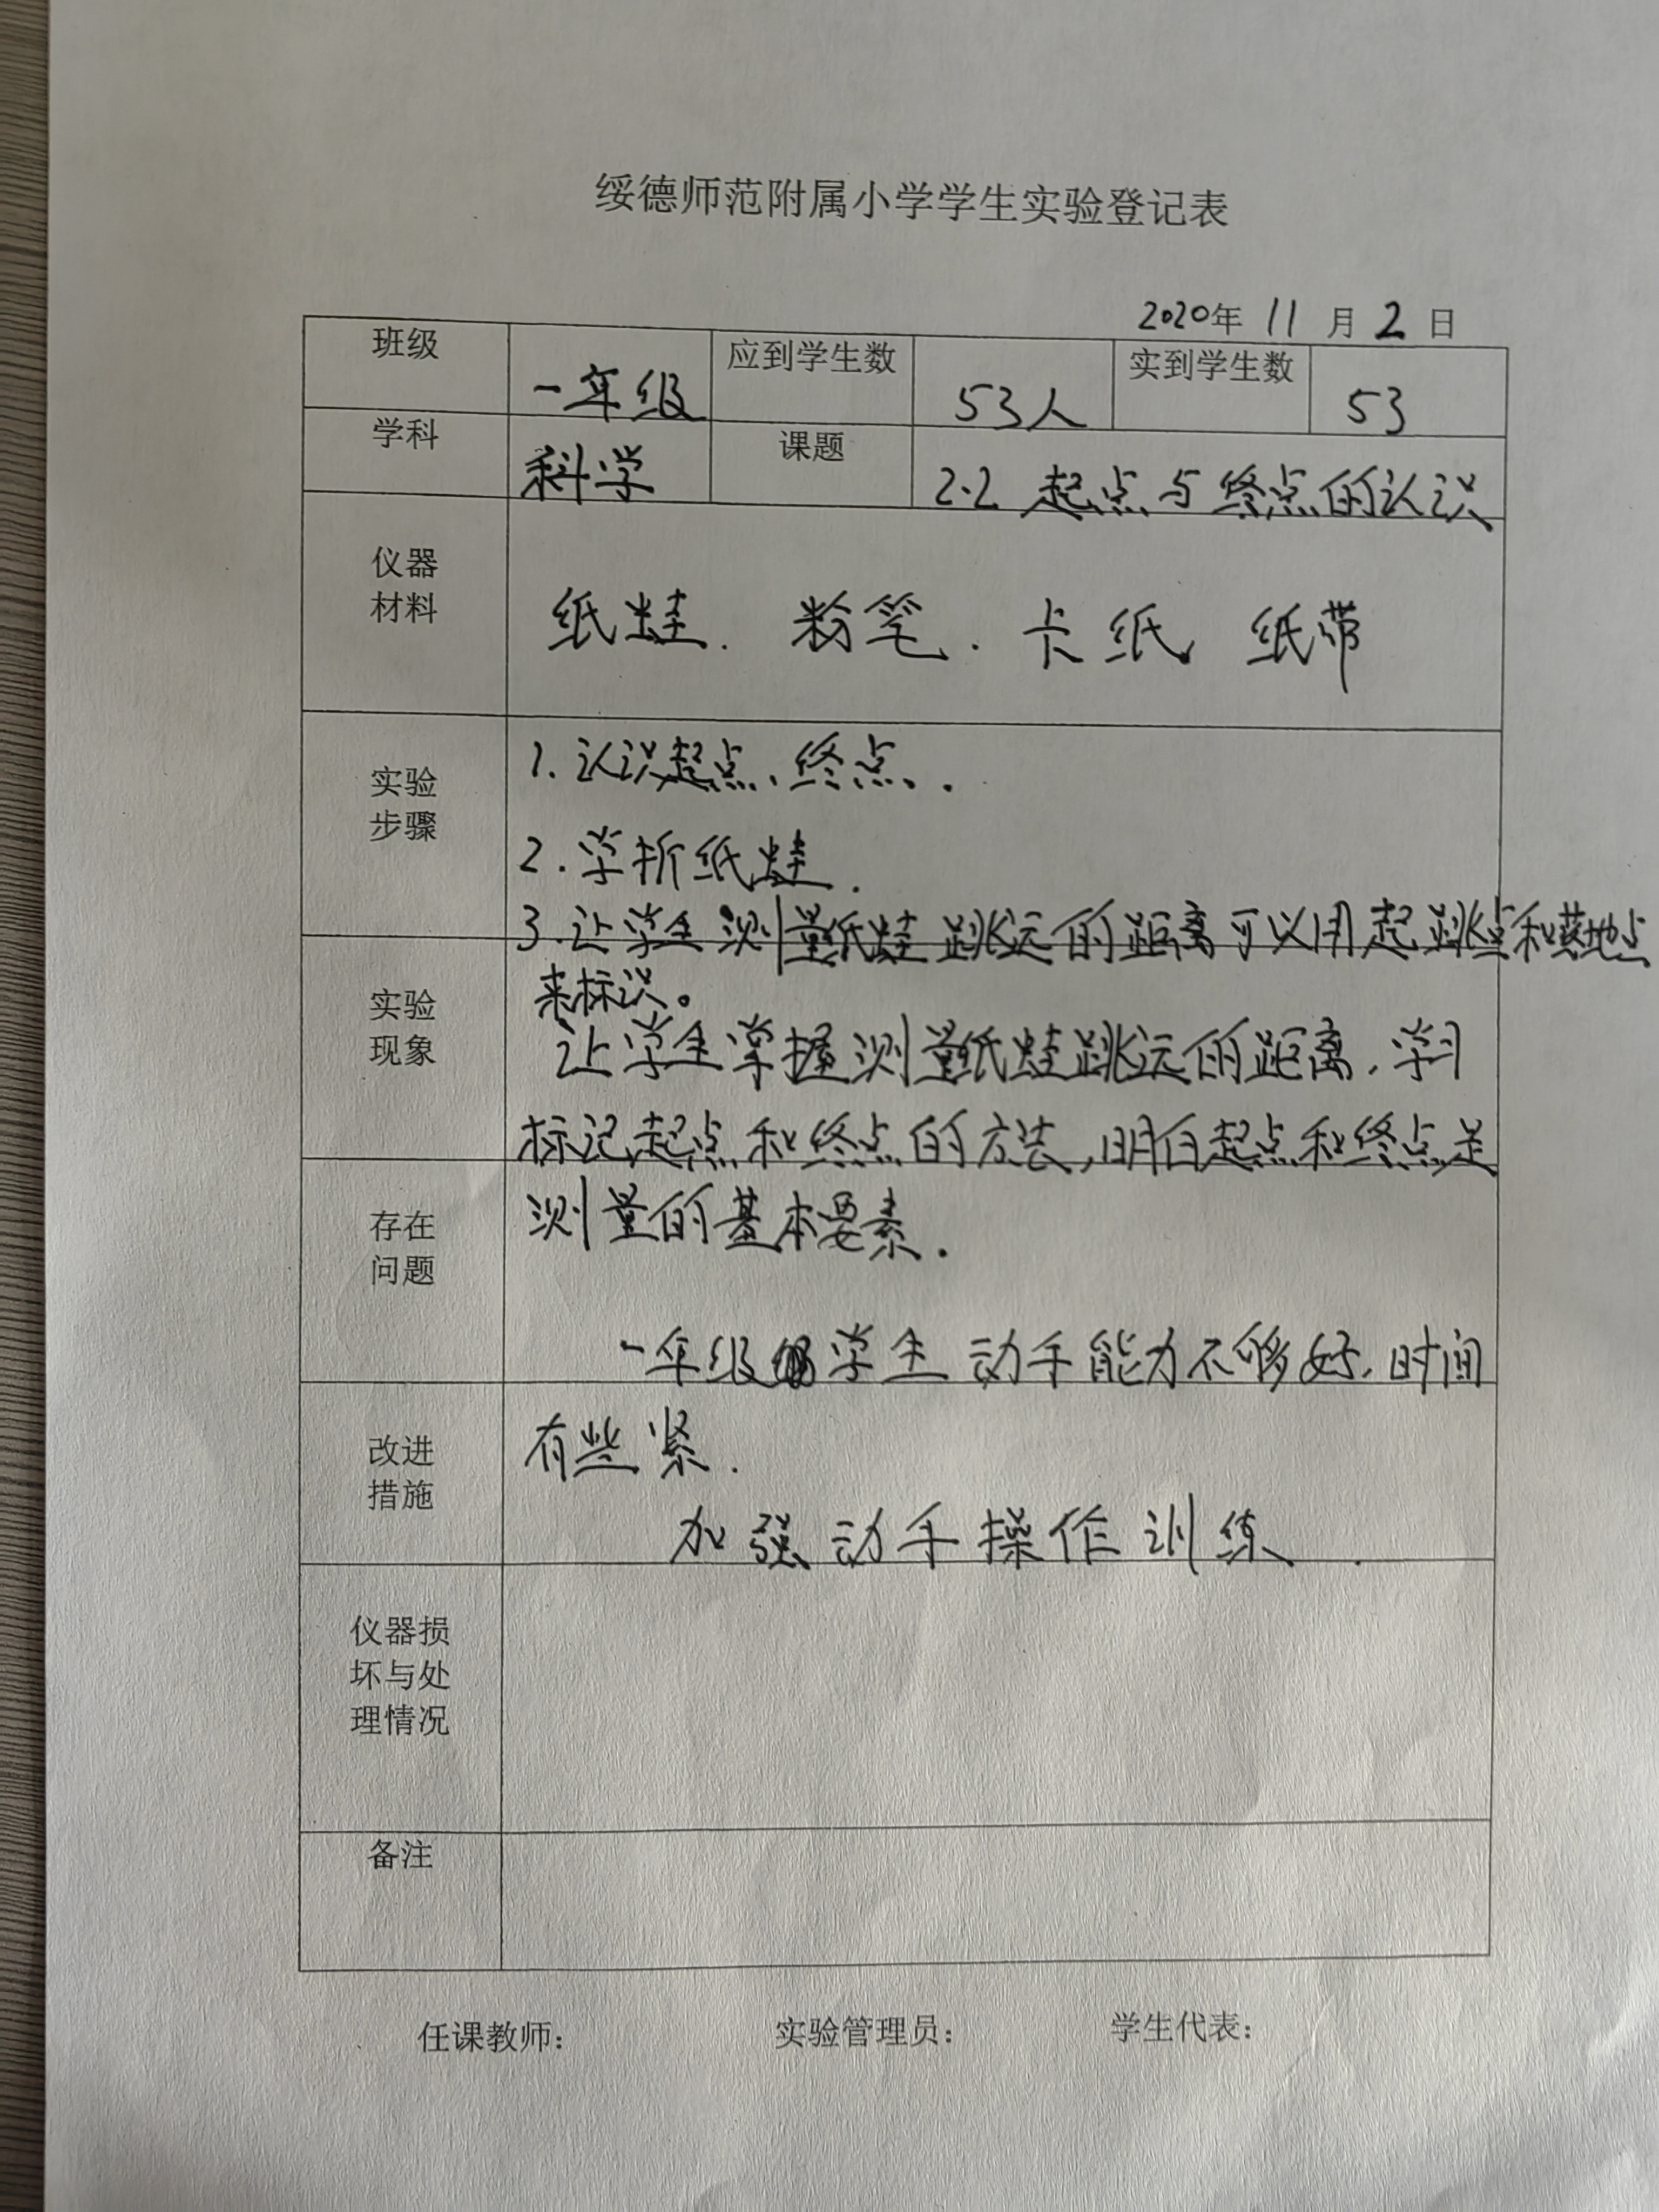 绥德师范附属小学学生实验登记表
2020年 11 月 2 日
班级 一年级 应到学生数 53人 实到学生数 53
学科 科学 课题 2.2 起点与终点的认识
仪器
材料
纸蛙. 粉笔. 卡纸、纸带
实验
步骤
1. 认识起点、终点.
2. 学折纸蛙.
3. 让学生测量纸蛙跳远的距离可以用起跳点和落地点
来标识。
实验
现象
让学生掌握测量纸蛙跳远的距离, 学习
标记起点和终点的方法, 明白起点和终点是
测量的基本要素.
存在
问题
一年级学生动手能力不够好, 时间
有些紧.
改进
措施
加强动手操作训练.
仪器损
坏与处
理情况
备注
任课教师: 实验管理员: 学生代表: